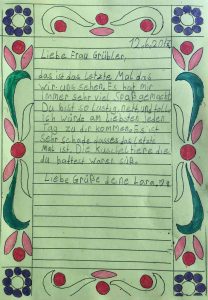 12.6.2018
Liebe Frau Grübler,
das ist das Letzte Mal das
wir uns sehen. Es hat mir
immer sehr viel Spaß gemacht.
Du bist so Lustig, nett und toll.
Ich würde am Liebsten jeden
Tag zu dir kommen. Es ist
sehr schade dasses das Letzte
Mal ist. Die Kuscheltiere die
du hattest waren süß.
Liebe Grüße deine Lara,